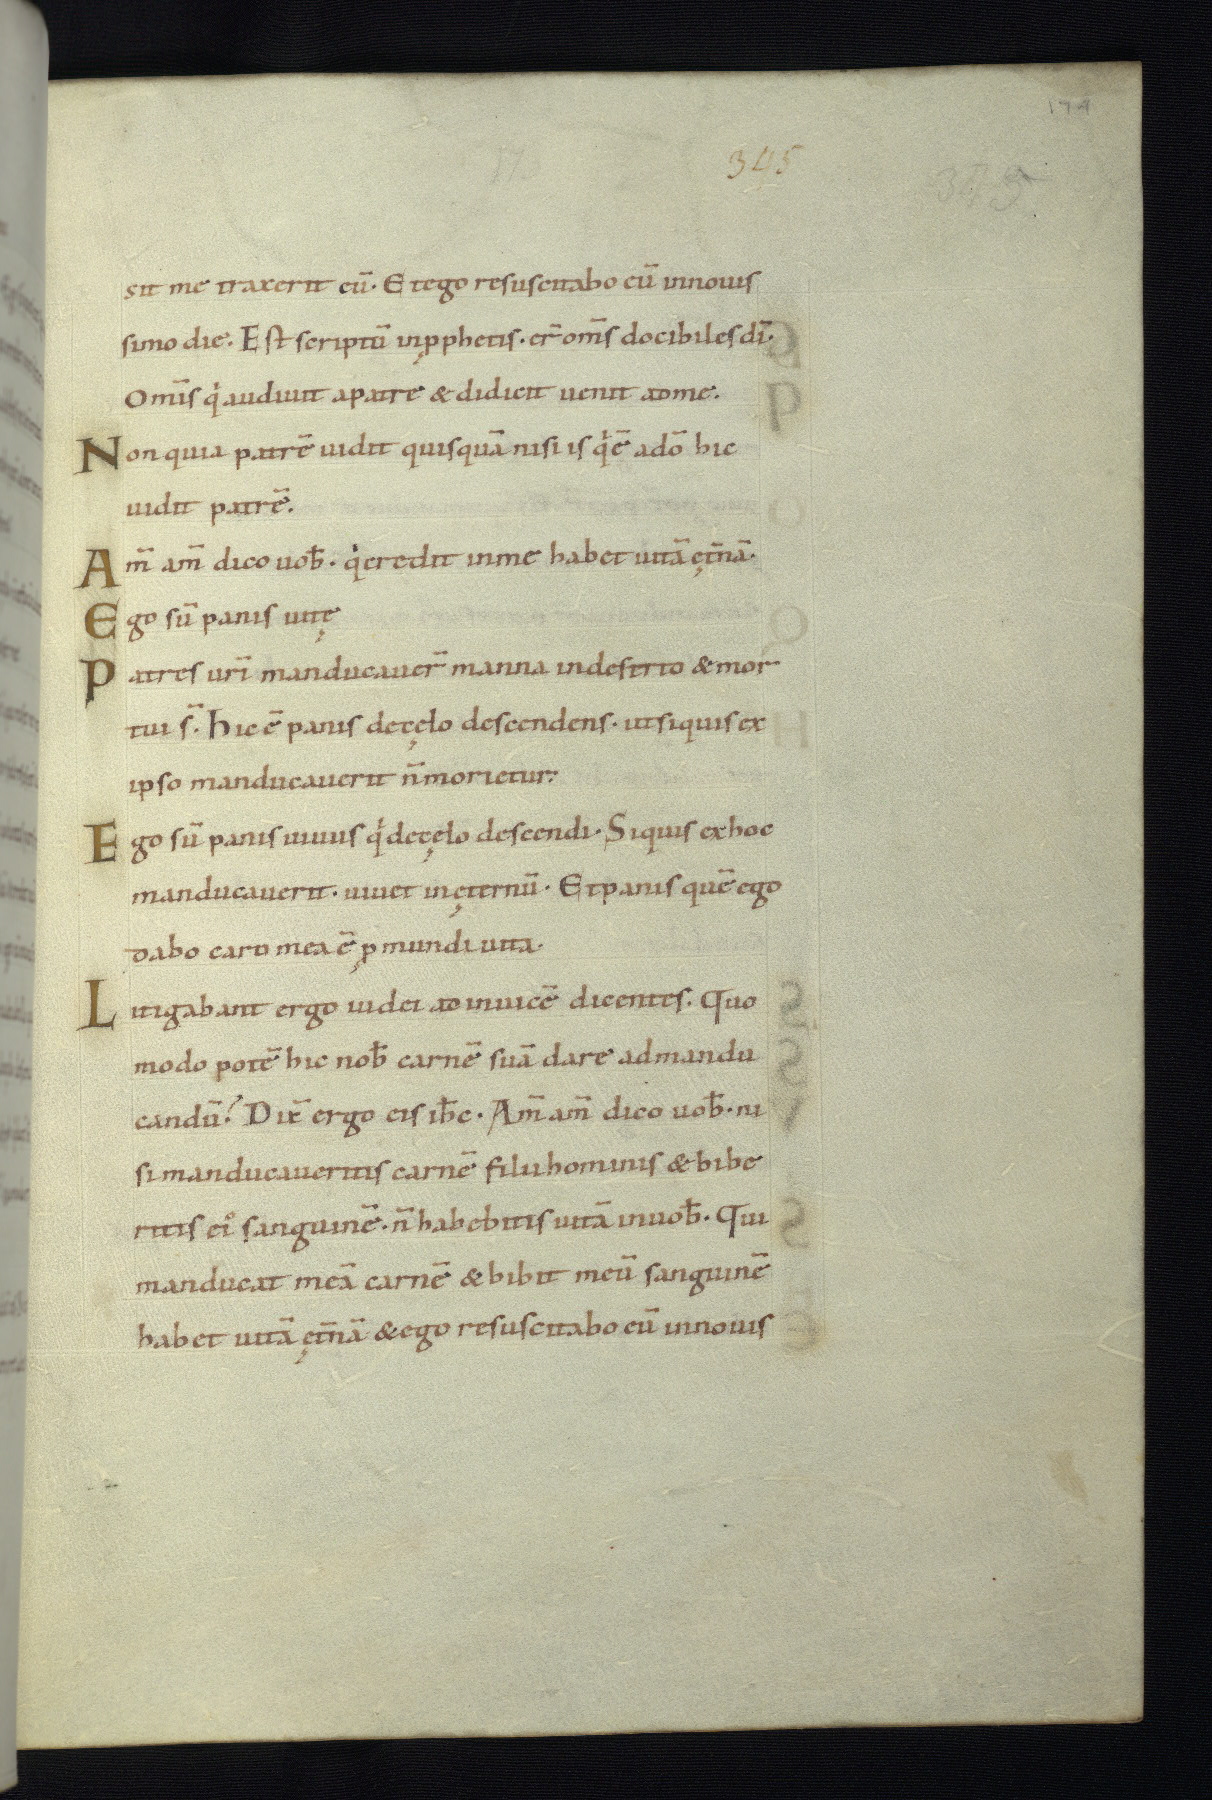 174
345
345
sit me traxerit eū. Et ego resuscitabo eū in nouis
simo die. Est scriptū in ꝓphetis. er̄ om̄s docibiles dī.
Om̄is q̇ audiuit a patre & didicit uenit ad me.
Non quia patrē uidit quisquā nisi is q̇ ē a dō hic
uidit patrē.
Am̄ am̄ dico uob̄. q̇ credit in me habet uitā ęt̄nā.
Ego sū panis uitę
Patres ur̄i manducauer̄ manna in deserto & mor
tui s̄. Hic ē panis de cęlo descendens. ut siquis ex
ipso manducauerit n̄ morietur.
Ego sū panis uiuus q̇ de cęlo descendi. Siquis ex hoc
manducauerit. uiuet in ęternū. Et panis quē ego
dabo caro mea ē ꝓ mundi uita.
Litigabant ergo iudei ad inuicē dicentes. Quo
modo potē hic nob̄ carnē suā dare ad mandu
candū? Dix̄ ergo eis ih̄c. Am̄ am̄ dico uob̄. ni
si manducaueritis carnē filii hominis & bibe
ritis ei᾿ sanguinē. n̄ habebitis uitā in uob̄. Qui
manducat meā carnē & bibit meū sanguinē
habet uitā ęt̄nā & ego resuscitabo eū in nouis